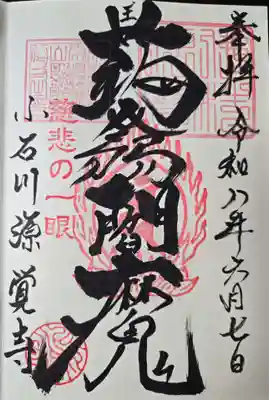 奉拝 令和八年六月七日
蒟蒻閻魔
慈悲の一眼
小石川源覺寺